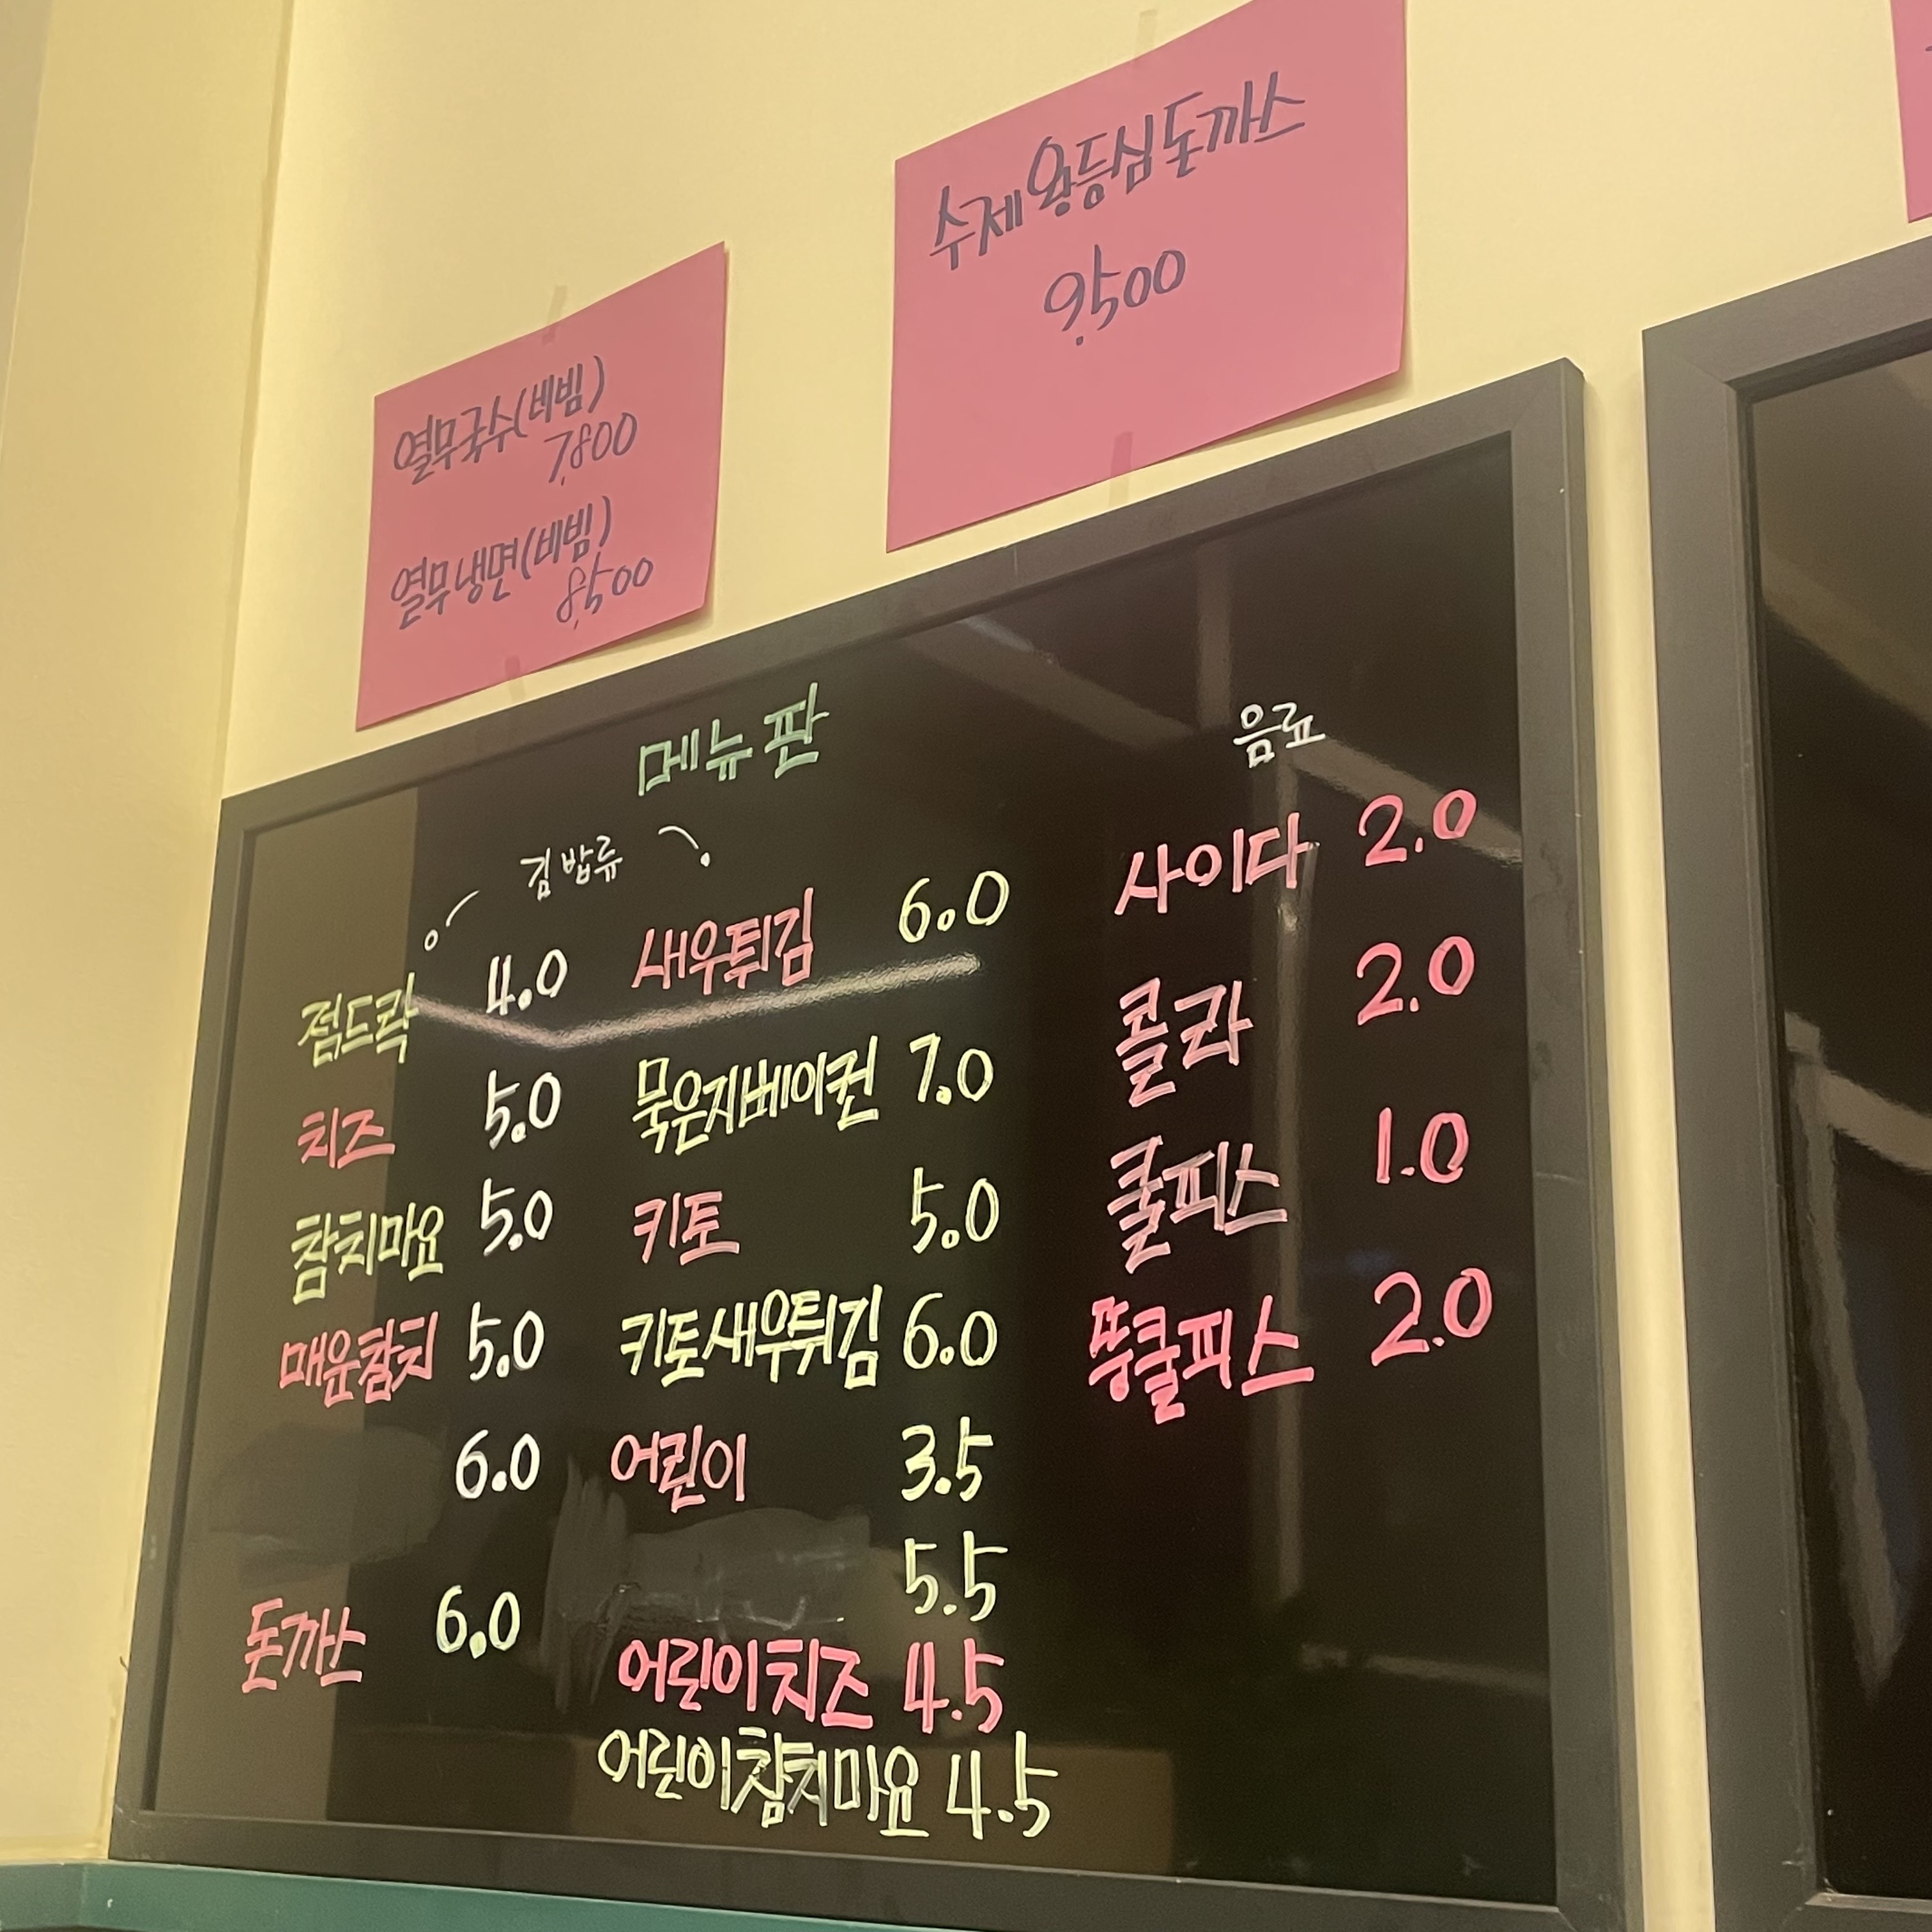 수제왕등심돈까스
9,500
열무국수(비빔)
7,800
열무냉면(비빔)
8,500
메뉴판
김밥류
점드락 4.0
치즈 5.0
참치마요 5.0
매운참치 5.0
6.0
돈까스 6.0
새우튀김 6.0
묵은지베이컨 7.0
키토 5.0
키토새우튀김 6.0
어린이 3.5
5.5
어린이치즈 4.5
어린이참치마요 4.5
음료
사이다 2.0
콜라 2.0
쿨피스 1.0
뚱쿨피스 2.0